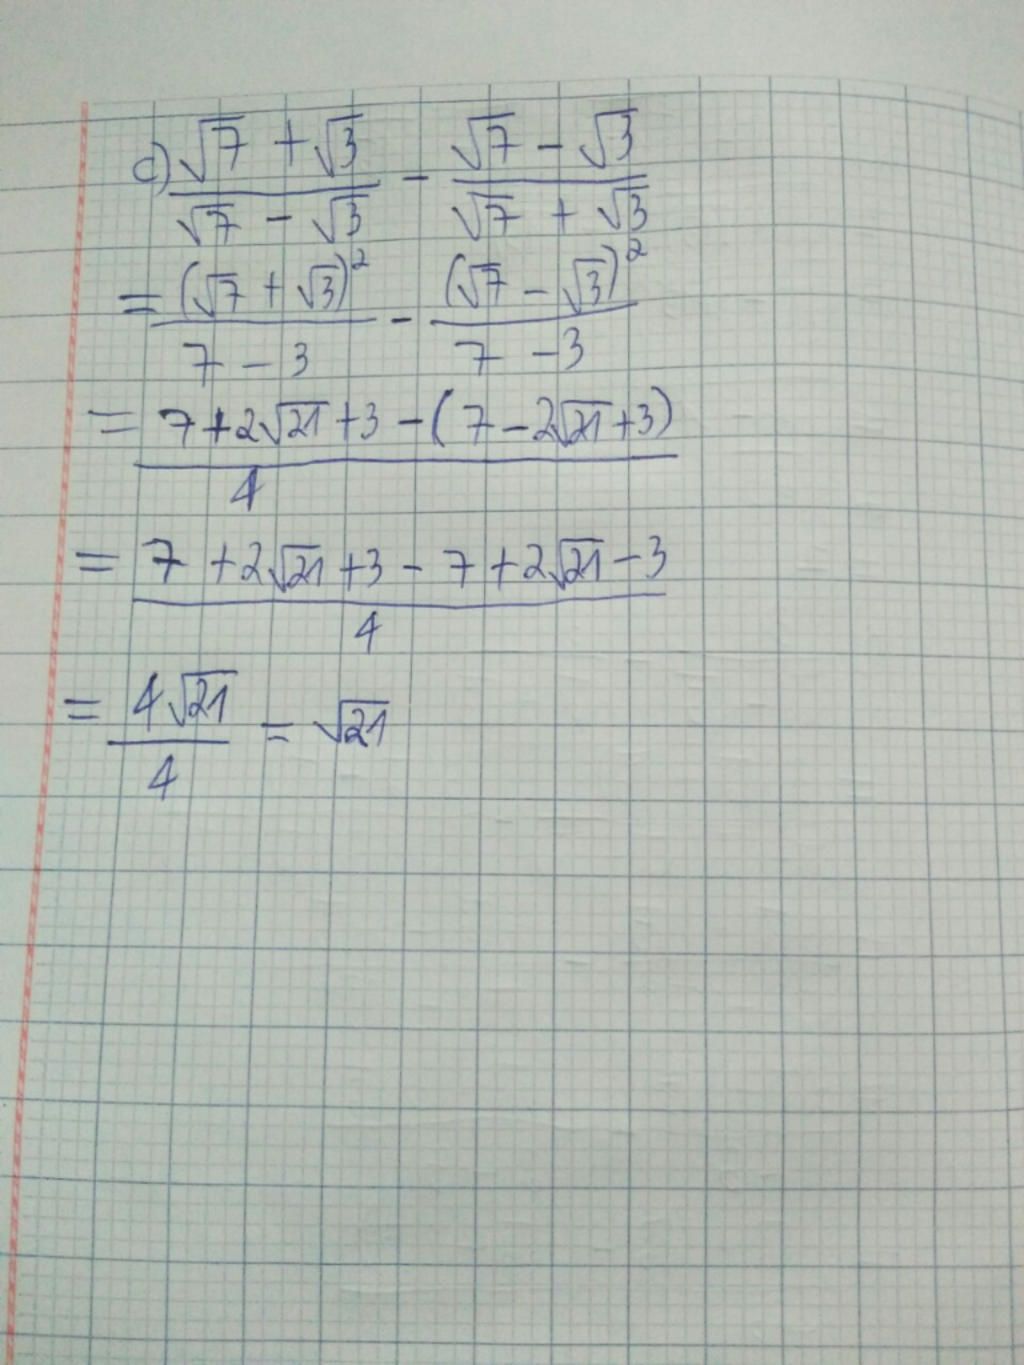 c) (√7 + √3)/(√7 − √3) − (√7 − √3)/(√7 + √3)
= (√7 + √3)²/(7 − 3) − (√7 − √3)²/(7 − 3)
= (7 + 2√21 + 3 − (7 − 2√21 + 3))/4
= (7 + 2√21 + 3 − 7 + 2√21 − 3)/4
= 4√21/4 = √21